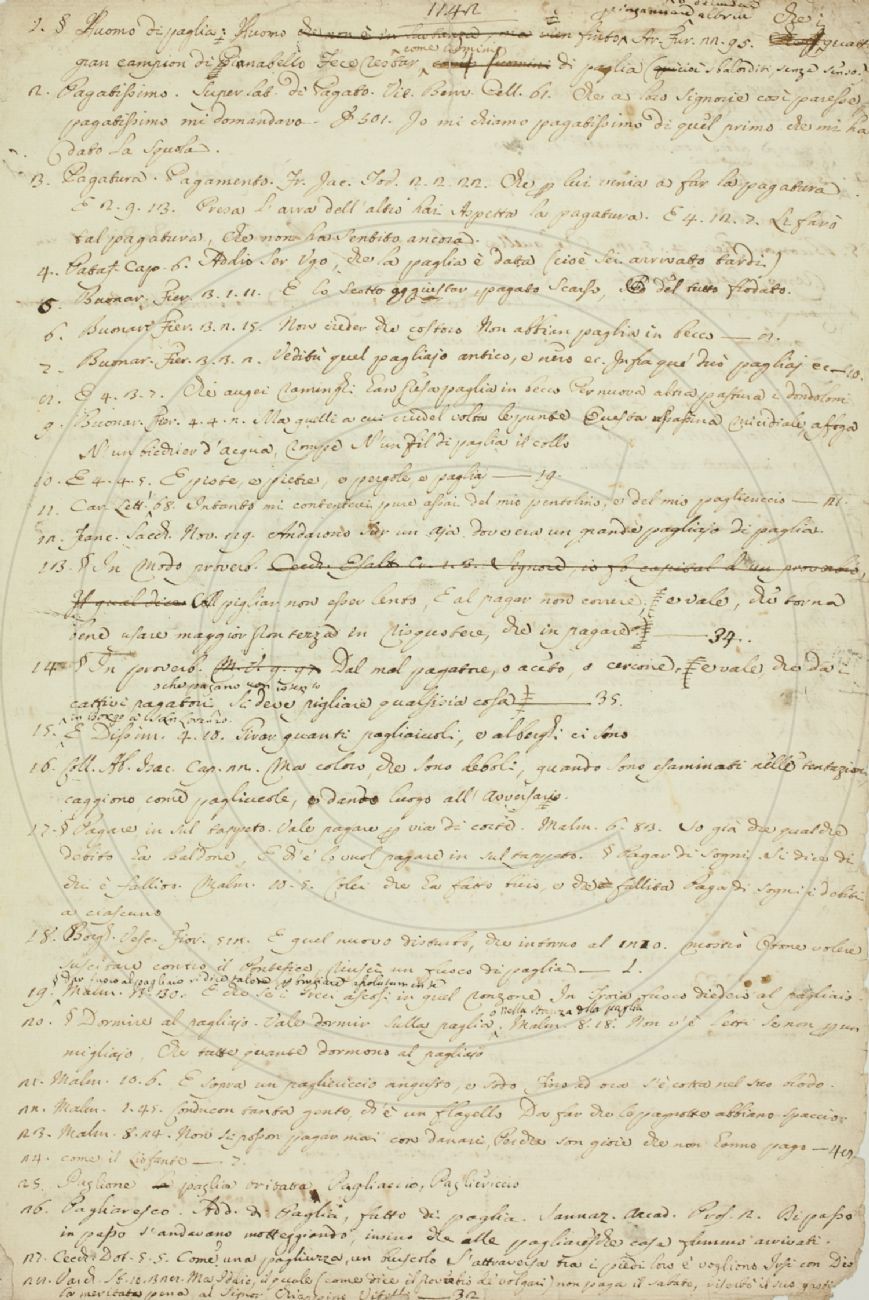 1142
1. § Huomo di paglia: Huomo finto. Ar. Fur. 22. 95. Che i quatt
gran campion di Pinabello Fece restar come uomini di paglia (cioè sbalorditi senza senso.)
2. Pagatissimo. Superlat. di Pagato. Vit. Benv. Cell. 61. Che a loro Signorie così paresse,
pagatissimo mi domandavo. E 501. Io mi chiamo pagatissimo di quel primo che mi ha
dato la Scuola.
3. Pagatura. Pagamento. Fr. Jac. Tod. 2. 2. 22. Che p lui venia a far la pagatura
E 2. 9. 13. Presa l'arra dell'altro hai Aspetta la pagatura. E 4. 12. 7. Le farò
tal pagatura, Che non ha sentito ancora.
4. Pataf. Cap. 6. Addio Ser Ugo, che la paglia è data (cioè sei arrivatto tardi)
5. Buonar. Fier. 3. 1. 11. E lo scotto pagato scarso, del tutto frodato.
6. Buonar. Fier. 3. 2. 15. Non creder che costoro Non abbian paglia in becco
7. Buonar. Fier. 3. 3. 2. Vedestù quel pagliajo antico, e nero ec. Infra que' duo pagliaj ec — 10.
8. E 4. 3. 7. Che augei raminghi Con paglia in becco Per nuova altra pastura i dondoloni
9. Buonar. Fier. 4. 4. 2. Ma quelli a cui crudel volta le punte Questa assassina micidiale, affoga
N'un bicchier d'acqua, rompe N'un fil di paglia il collo
10. E 4. 4. 5. E piote, e pietre, e pergole e paglie — 19.
11. Car. Lett. 68. Intanto mi contenterei pure assai del mio pentolino, e del mio pagliericcio — 21.
12. Franc. Sacch. Nov. 119. Andarono su un aja dove era un grande pagliajo di paglia
13. § In modo proverb. Cecch. Esalt. Cr. 1. 5. Signore, io fo capital d'un proverbio,
Il qual dice Al pigliar non esser lento, E al pagar non correre; e vale, che torna
bene usare maggior prontezza in riscuotere, che in pagare — 34.
14. § In proverb. Dal mal pagatore, o aceto, o cercone, e vale che da i
cattivi pagatori, o che pagano si deve pigliare qualsisia cosa — 35.
in Borgo a San Lorenzo
15. E Dissim. 4. 10. Girar quanti pagliaiuoli, e alberghi ci sono
16. Coll. Ab. Isac. Cap. 22. Ma coloro, che sono deboli, quando sono esaminati nelle tentazion
caggiono come pagliucole, e danno luogo all'avversario.
17. § Pagare in sul tappeto. Vale pagare p via di corte. Malm. 6. 83. So già che qualche
debito ha Baldone, E ch'e' lo vuol pagare in sul tappeto. § Pagar di Sogni. Si dice di
chi è fallito. Malm. 10. 5. Colei che ha fatto buio, e ch'è fallita Paga di sogni i debiti
a ciascuno
18. Borgh. Vesc. Fior. 512. E quel nuovo disturbo, che intorno al mostrò Roma volere
suscitare contro il Pontefice riuscì un fuoco di paglia — 1.
19. Malm. E che se i Greci ascosi in quel ronzone In Troja fuoco diedero al pagliaio.
20. § Dormire al pagliajo. Vale dormir sulla paglia, o nella stanza della paglia. Malm. 8. 18. Non v'è letti se non p un
migliajo, Che tutte quante dormono al pagliajo
21. Malm. 10. 6. E sopra un pagliericcio angusto, e sodo Fino ad ora s'è cotta nel suo brodo.
22. Malm. 1. 45. Conducon tanta gente, ch'è un flagello Da far che le pagnotte abbiano spaccio
23. Malm. 8. 24. Non si posson pagar mai con danari, Perchè son gioie che non hanno pago — 40,
24. come il Liofante — 7.
25. Paglione paglia tritata, Pagliaccio, Pagliericcio
26. Pagliaresco. Add. di Paglia, fatto di paglia. Sannaz. Arcad. Pros. 2. Di passo
in passo s'andavano motteggiando, insino che alle pagliaresche case fummo arrivati.
27. Cecch. Dot. 5. 5. Come una pagliuzza, un bruscolo s'attraversa tra i piedi loro e vogliono Irsi con Dio
28. Varch. St. 12. Ma Iddio, il quale (come dice il proverbio de' volgari) non paga il sabato,
la meritata pena al Signor Chiappino Vitelli — 32